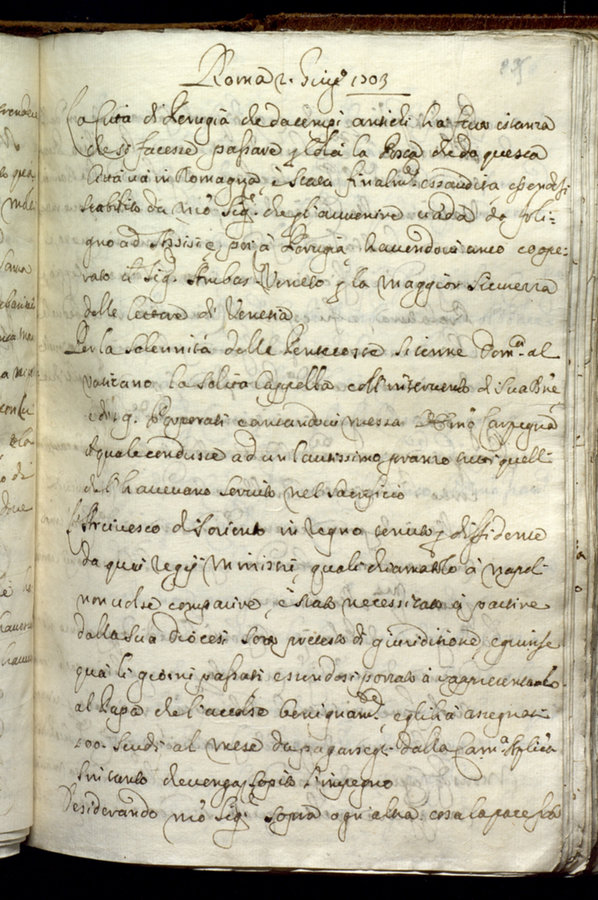 Roma 2. Giug.º 1703
La Città di Perugia che da tempi antichi ha fatto istanza
che si facesse passare p Colà la Posta che da questa
Città và in Romagna, è stata finalm.te essaudita, essendosi
stabilito da nrõ Sig.e che p l'avvenire vada da Foli-
gno ad Assisi, e poi à Perugia, havendoci anco coope-
rato il Sig. Ambas. Veneto p la maggior sicurezza
delle lettere di Venetia
Per la solennità delle Pentecoste si tenne Dom.ca al
Vaticano la solita Cappella coll'intervento di Sua Bne
e di Porporati cantandovi messa Carpegna
il quale condusse ad un lautissimo pranzo tutti quelli
che l'havevano servito nel sacrificio
L'Arcivesco di Sorrento in Regno tenuto p diffidente
da quei Regij Ministri, quali chiamatolo à Napoli
non volse comparire, è stato necessitato à partire
dalla sua Diocesi sotto pretesto di giuriditione, e giunse
quà li giorni passati essendosi portato à rappresentarlo
al Papa che l'accolse benignam.te, e gli hà assegnati
100. scudi al mese da pagarsegli dalla Cam.a Aplica
sin tanto che venga sopito l'impegno
Desiderando nrõ Sig.e sopra ogn'altra cosa la pace frà